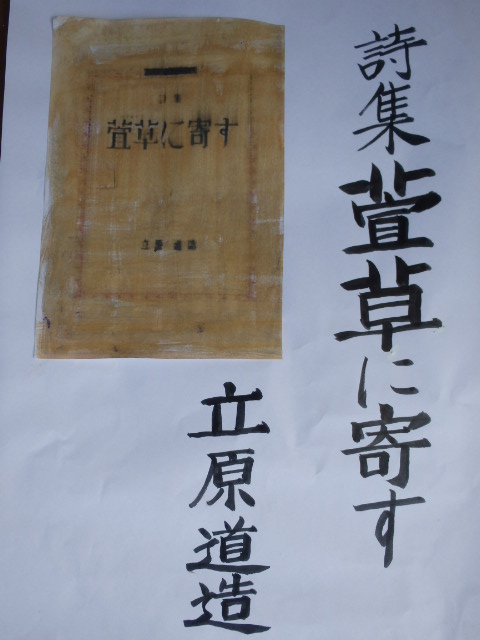 詩集 萱草に寄す
立原道造
詩集
萱草に寄す
立原道造